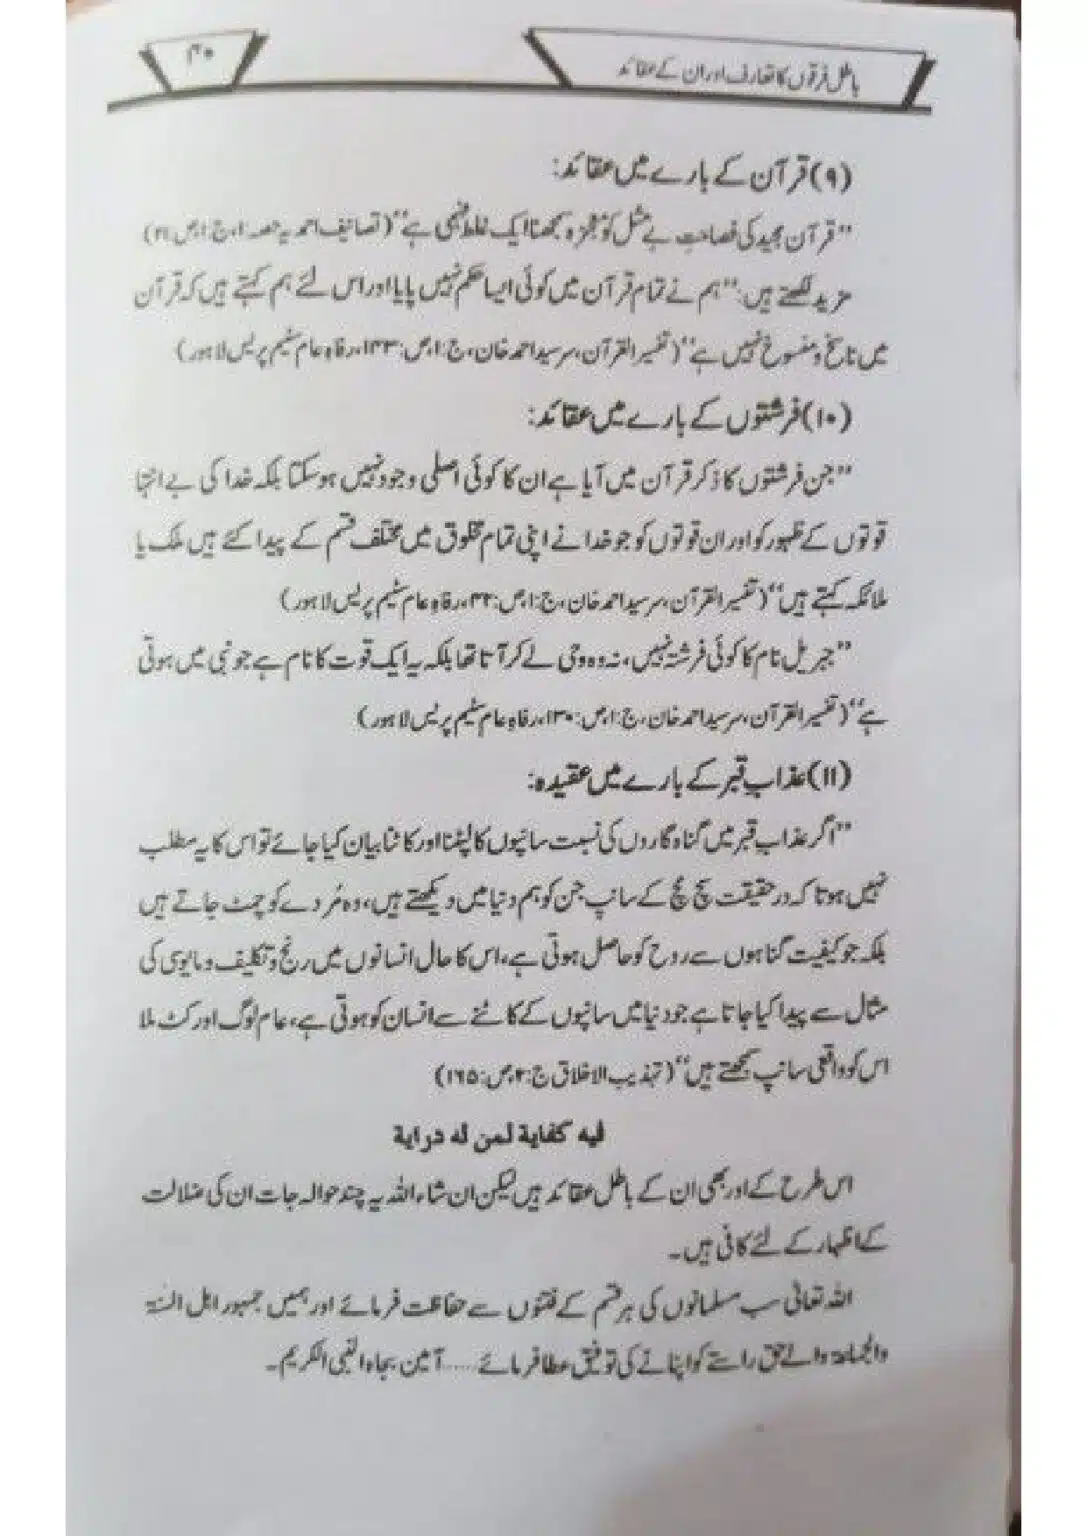 باطل فرقوں کا تعارف اور ان کے عقائد
۴۰
(۹) قرآن کے بارے میں عقائد:
"قرآن مجید کی فصاحت بے مثل کو معجزہ سمجھنا ایک غلط فہمی ہے" (تصانیف احمدیہ حصہ ۱، ج:۱، ص:۲۱)
مزید لکھتے ہیں: "ہم نے تمام قرآن میں کوئی ایسا حکم نہیں پایا اور اس لئے ہم کہتے ہیں کہ قرآن
میں ناسخ و منسوخ نہیں ہے" (تفسیر القرآن، سرسید احمد خان، ج:۱، ص:۱۴۳، رفاہ عام سٹیم پریس لاہور)
(۱۰) فرشتوں کے بارے میں عقائد:
"جن فرشتوں کا ذکر قرآن میں آیا ہے ان کا کوئی اصلی وجود نہیں ہو سکتا بلکہ خدا کی بے انتہا
قوتوں کے ظہور کو اور ان قوتوں کو جو خدا نے اپنی تمام مخلوق میں مختلف قسم کے پیدا کئے ہیں ملک یا
ملائکہ کہتے ہیں" (تفسیر القرآن، سرسید احمد خان، ج:۱، ص:۴۲، رفاہ عام سٹیم پریس لاہور)
"جبریل نام کا کوئی فرشتہ نہیں، نہ وہ وحی لے کر آتا تھا بلکہ یہ ایک قوت کا نام ہے جو نبی میں ہوتی
ہے" (تفسیر القرآن، سرسید احمد خان، ج:۱، ص:۱۳۰، رفاہ عام سٹیم پریس لاہور)
(۱۱) عذاب قبر کے بارے میں عقیدہ:
"اگر عذاب قبر میں گناہ گاروں کی نسبت سانپوں کا لپٹنا اور کاٹنا بیان کیا جائے تو اس کا یہ مطلب
نہیں ہوتا کہ در حقیقت سچ مچ کے سانپ جن کو ہم دنیا میں دیکھتے ہیں، وہ مُردے کو چمٹ جاتے ہیں
بلکہ جو کیفیت گناہوں سے روح کو حاصل ہوتی ہے، اس کا حال انسانوں میں رنج و تکلیف و مایوی کی
مثال سے پیدا کیا جاتا ہے جو دنیا میں سانپوں کے کاٹنے سے انسان کو ہوتی ہے، عام لوگ اور کٹ ملا
اس کو واقعی سانپ سمجھتے ہیں" (تہذیب الاخلاق ج:۲، ص:۱۶۵)
فيه كفاية لمن له دراية
اس طرح کے اور بھی ان کے باطل عقائد ہیں لیکن ان شاء اللہ یہ چند حوالہ جات ان کی ضلالت
کے اظہار کے لئے کافی ہیں۔
اللہ تعالیٰ سب مسلمانوں کی ہر قسم کے فتنوں سے حفاظت فرمائے اور ہمیں جمہور اہل السنۃ
والجماعۃ والے حق راستے کو اپنانے کی توفیق عطا فرمائے..... آمین بجاہ النبی الکریم۔